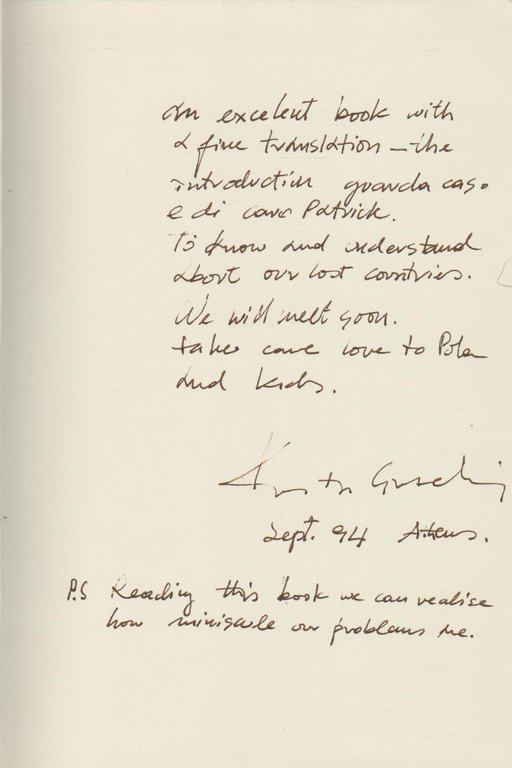 An excelent book with
a fine translation – the
introduction guarda caso
e di caro Patrick.
To know and understand
abort our lost countries.
We will meet soon.
take care love to Pola
and kids.
Sept. 94 Athens.
P.S Reading this book we can realise
how miniscule our problems are.